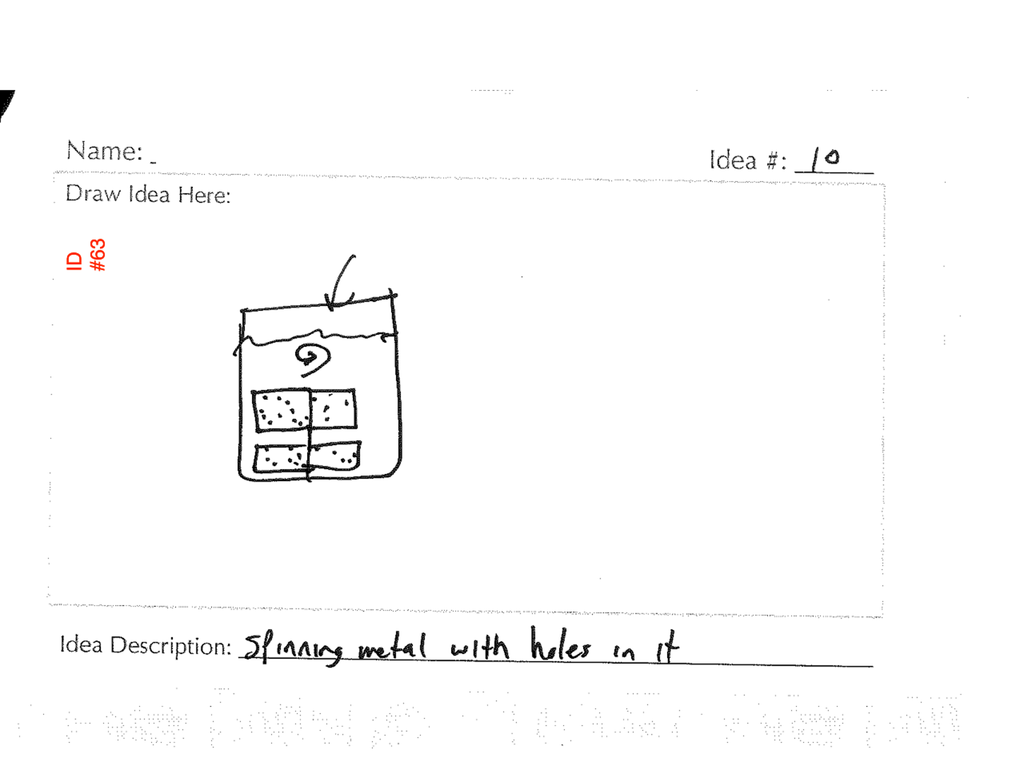 Name:
Idea #: 10
Draw Idea Here:
ID
#63
Idea Description: Spinning metal with holes in it